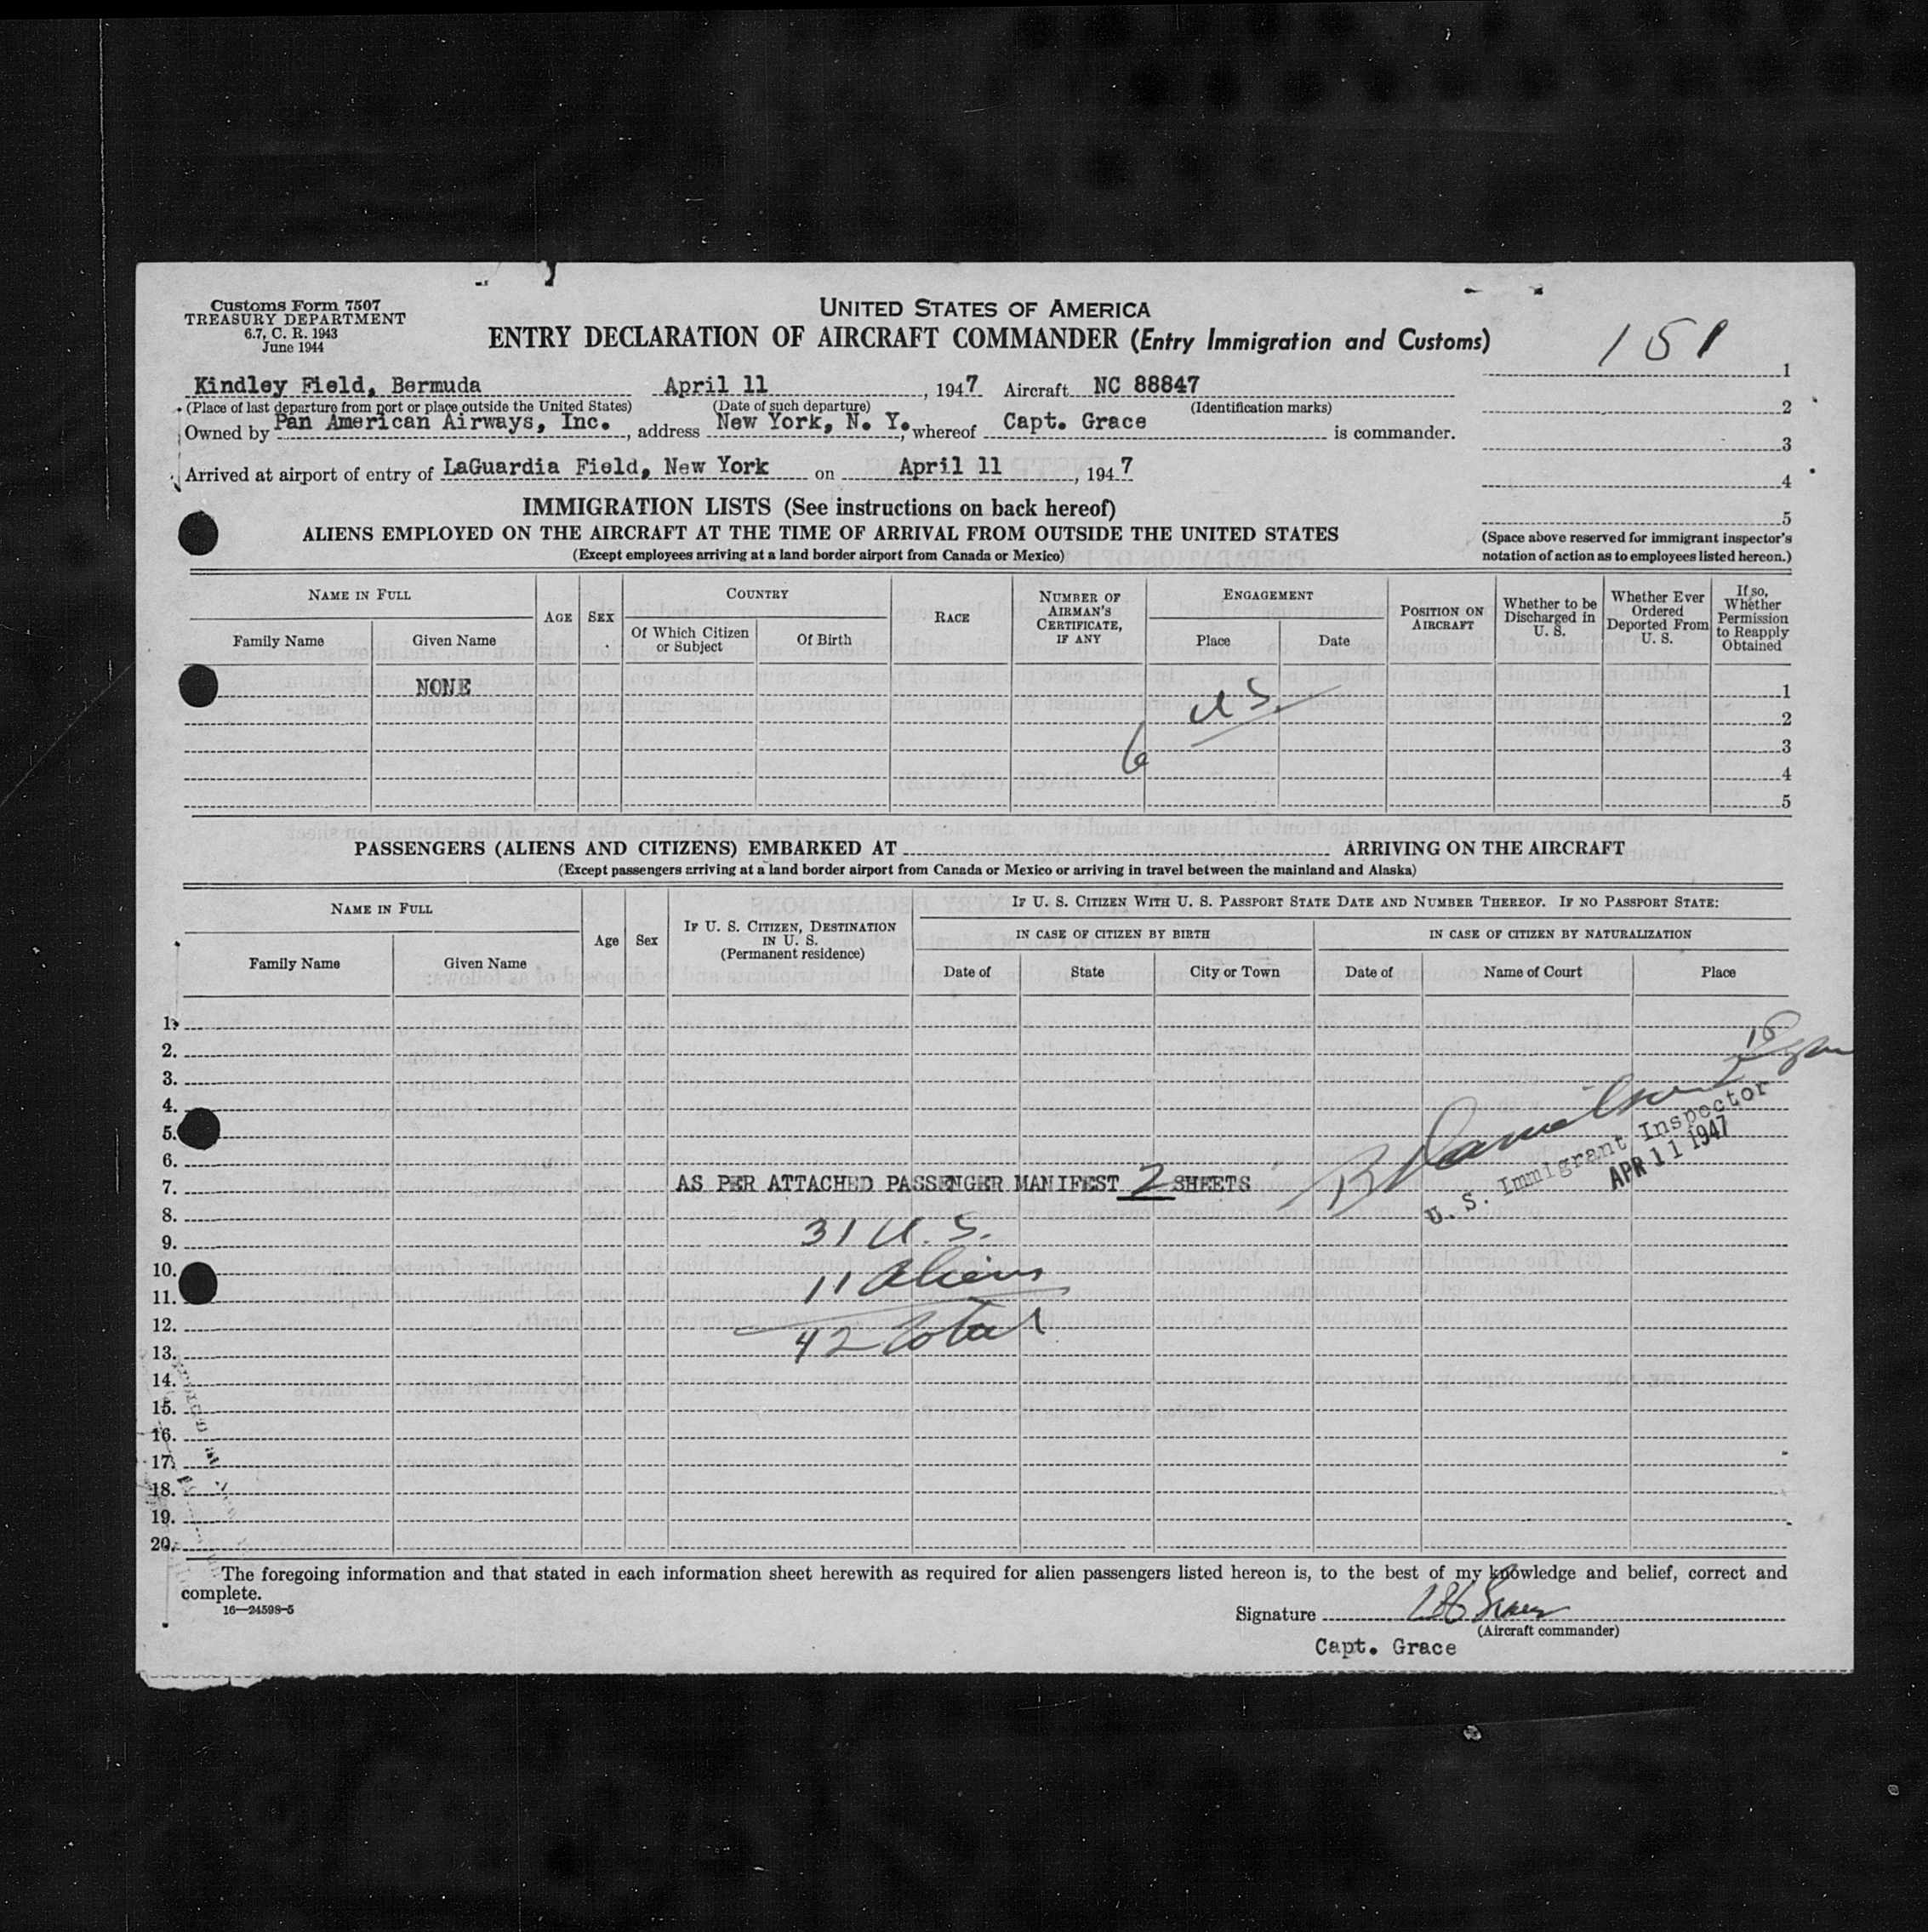 Customs Form 7507
TREASURY DEPARTMENT
6.7, C. R. 1943
June 1944
UNITED STATES OF AMERICA
ENTRY DECLARATION OF AIRCRAFT COMMANDER (Entry Immigration and Customs)
151
Kindley Field, Bermuda April 11, 1947 Aircraft NC 88847
(Place of last departure from port or place outside the United States) (Date of such departure) (Identification marks)
Owned by Pan American Airways, Inc., address New York, N. Y., whereof Capt. Grace is commander.
Arrived at airport of entry of LaGuardia Field, New York on April 11, 1947
1
2
3
4
5
(Space above reserved for immigrant inspector's
notation of action as to employees listed hereon.)
IMMIGRATION LISTS (See instructions on back hereof)
ALIENS EMPLOYED ON THE AIRCRAFT AT THE TIME OF ARRIVAL FROM OUTSIDE THE UNITED STATES
(Except employees arriving at a land border airport from Canada or Mexico)
NAME IN FULL
Family Name
Given Name
AGE
SEX
COUNTRY
Of Which Citizen
or Subject
Of Birth
RACE
NUMBER OF
AIRMAN'S
CERTIFICATE,
IF ANY
ENGAGEMENT
Place
Date
POSITION ON
AIRCRAFT
Whether to be
Discharged in
U. S.
Whether Ever
Ordered
Deported From
U. S.
If so,
Whether
Permission
to Reapply
Obtained
NONE
6 U S.
1
2
3
4
5
PASSENGERS (ALIENS AND CITIZENS) EMBARKED AT ARRIVING ON THE AIRCRAFT
(Except passengers arriving at a land border airport from Canada or Mexico or arriving in travel between the mainland and Alaska)
NAME IN FULL
Family Name
Given Name
Age
Sex
IF U. S. CITIZEN, DESTINATION
IN U. S.
(Permanent residence)
IF U. S. CITIZEN WITH U. S. PASSPORT STATE DATE AND NUMBER THEREOF. IF NO PASSPORT STATE:
IN CASE OF CITIZEN BY BIRTH
Date of
State
City or Town
IN CASE OF CITIZEN BY NATURALIZATION
Date of
Name of Court
Place
1.
2.
3.
4.
5.
6.
7. AS PER ATTACHED PASSENGER MANIFEST 2 SHEETS
U. S. Immigrant Inspector
APR 11 1947
8.
9. 31 U. S.
10.
11. 11 Aliens
12.
13. 42 Total
14.
15.
16.
17.
18.
19.
20.
The foregoing information and that stated in each information sheet herewith as required for alien passengers listed hereon is, to the best of my knowledge and belief, correct and
complete.
16—24598-5
Signature
(Aircraft commander)
Capt. Grace